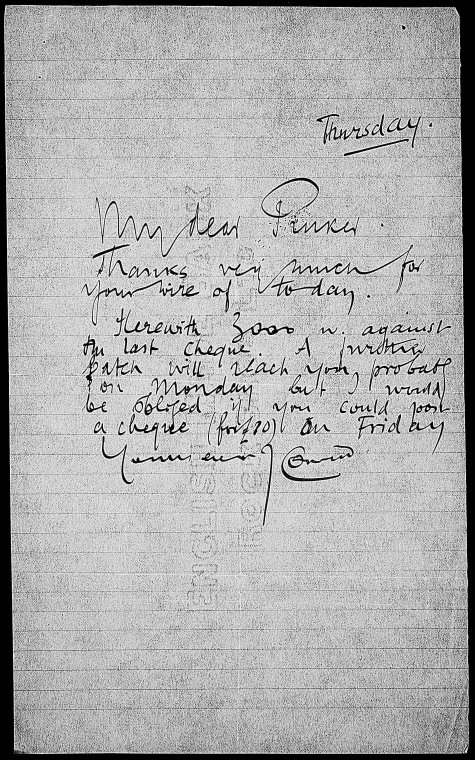 Thursday.
My dear Pinker.
Thanks very much for
your wire of to day.
Herewith 3000 w. against
the last cheque. A further
batch will reach you probab
on Monday but I would
be obliged if you could post
a cheque (for £20) on Friday
Yours ever J Conrad